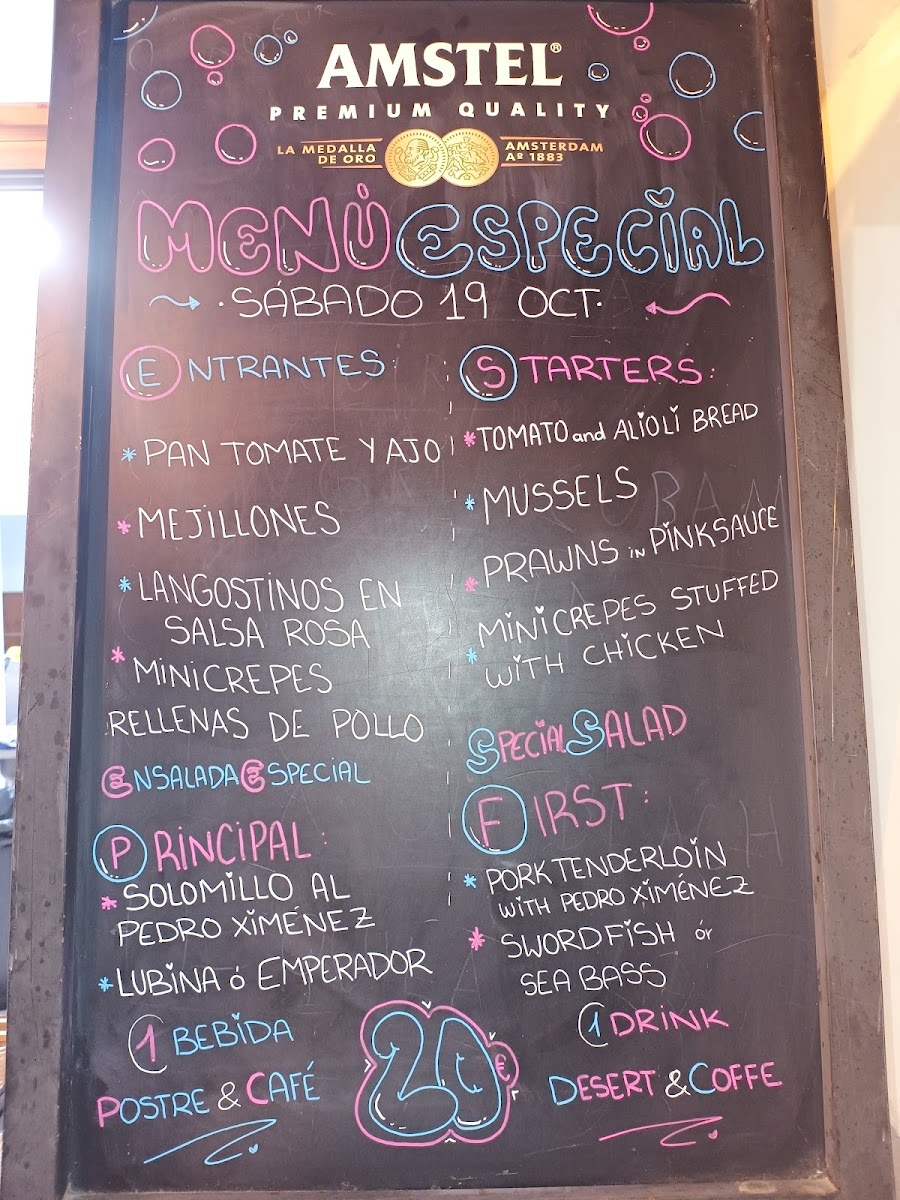 AMSTEL®
PREMIUM QUALITY
LA MEDALLA
DE ORO
AMSTERDAM
Aº 1883
MENÚ ESPECIAL
·SÁBADO 19 OCT·
ENTRANTES:
* PAN TOMATE Y AJO
* MEJILLONES
* LANGOSTINOS EN
SALSA ROSA
* MINICREPES
RELLENAS DE POLLO
ENSALADA ESPECIAL
PRINCIPAL:
* SOLOMILLO AL
PEDRO XIMÉNEZ
* LUBINA ó EMPERADOR
1 BEBIDA
POSTRE & CAFÉ
STARTERS:
* TOMATO and ALIOLI BREAD
* MUSSELS
* PRAWNS in PINKSAUCE
* MINICREPES STUFFED
WITH CHICKEN
SPECIAL SALAD
FIRST:
* PORK TENDERLOIN
WITH PEDRO XIMÉNEZ
* SWORDFISH ór
SEA BASS
1 DRINK
DESERT & COFFE
20€